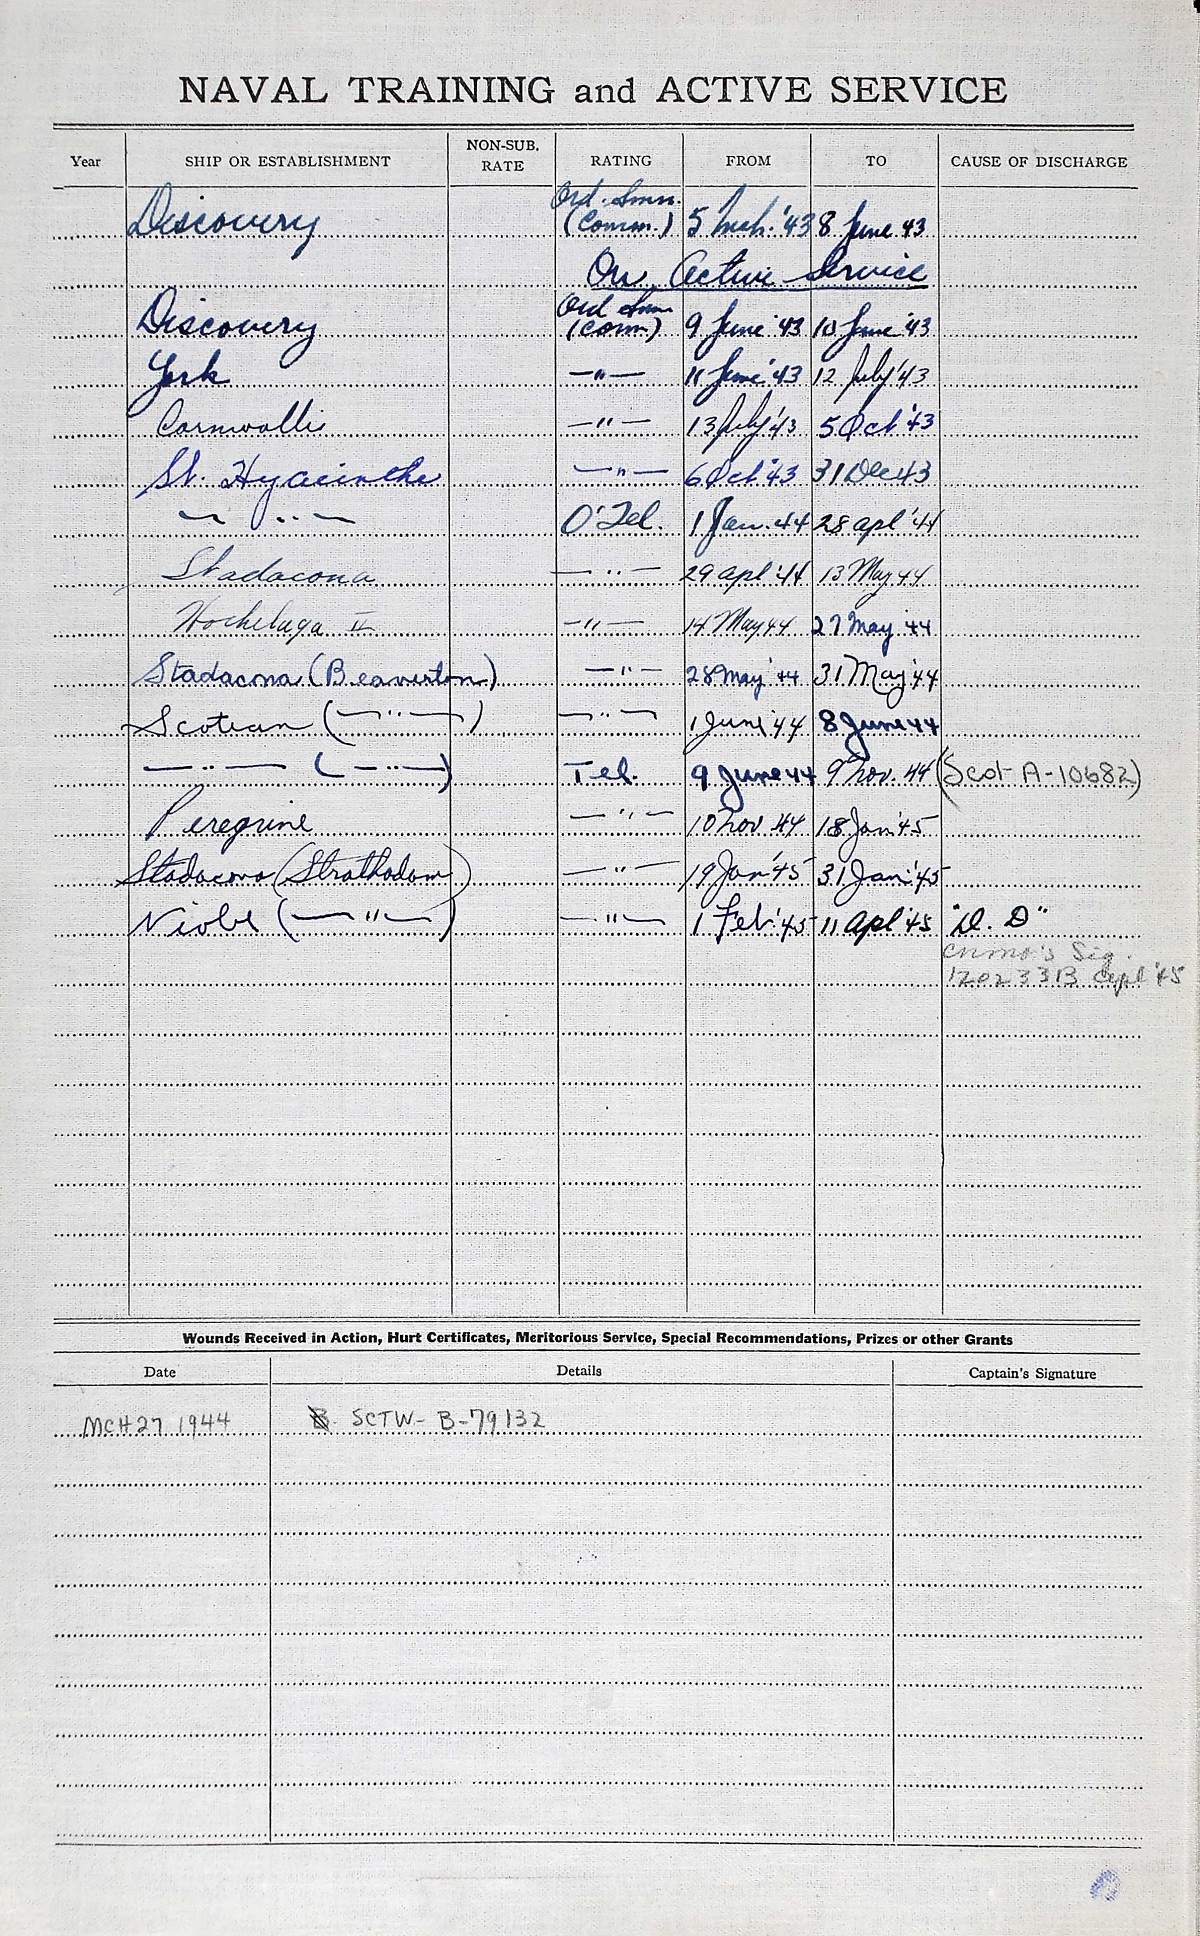 NAVAL TRAINING and ACTIVE SERVICE
Year SHIP OR ESTABLISHMENT NON-SUB. RATE RATING FROM TO CAUSE OF DISCHARGE
Discovery Ord. Smn. (Comm.) 5 Mch. '43 8 June 43
On Active Service
Discovery Ord Smn (Comm) 9 June '43 10 June '43
York —"— 11 June '43 12 July '43
Cornwallis —"— 13 July '43 5 Oct '43
St. Hyacinthe —"— 6 Oct '43 31 Dec 43
— " — O'Tel. 1 Jan. 44 28 apl '44
Stadacona — " — 29 apl '44 13 May 44
Hochelaga II —"— 14 May 44 27 May '44
Stadacona (Beaverton) —"— 28 May '44 31 May '44
Scotian (—"—) —"— 1 June '44 8 June 44
—"— (—"—) Tel. 9 June 44 9 Nov. 44 (Scot A-10682)
Peregrine —"— 10 Nov 44 18 Jan '45
Stadacona (Strathadam) —"— 19 Jan '45 31 Jan '45
Niobe (—"—) —"— 1 Feb '45 11 apl '45 "D. D"
CNMO's Sig.
120233B Apl '45
Wounds Received in Action, Hurt Certificates, Meritorious Service, Special Recommendations, Prizes or other Grants
Date Details Captain's Signature
MCH 27 1944 SCTW- B-79132